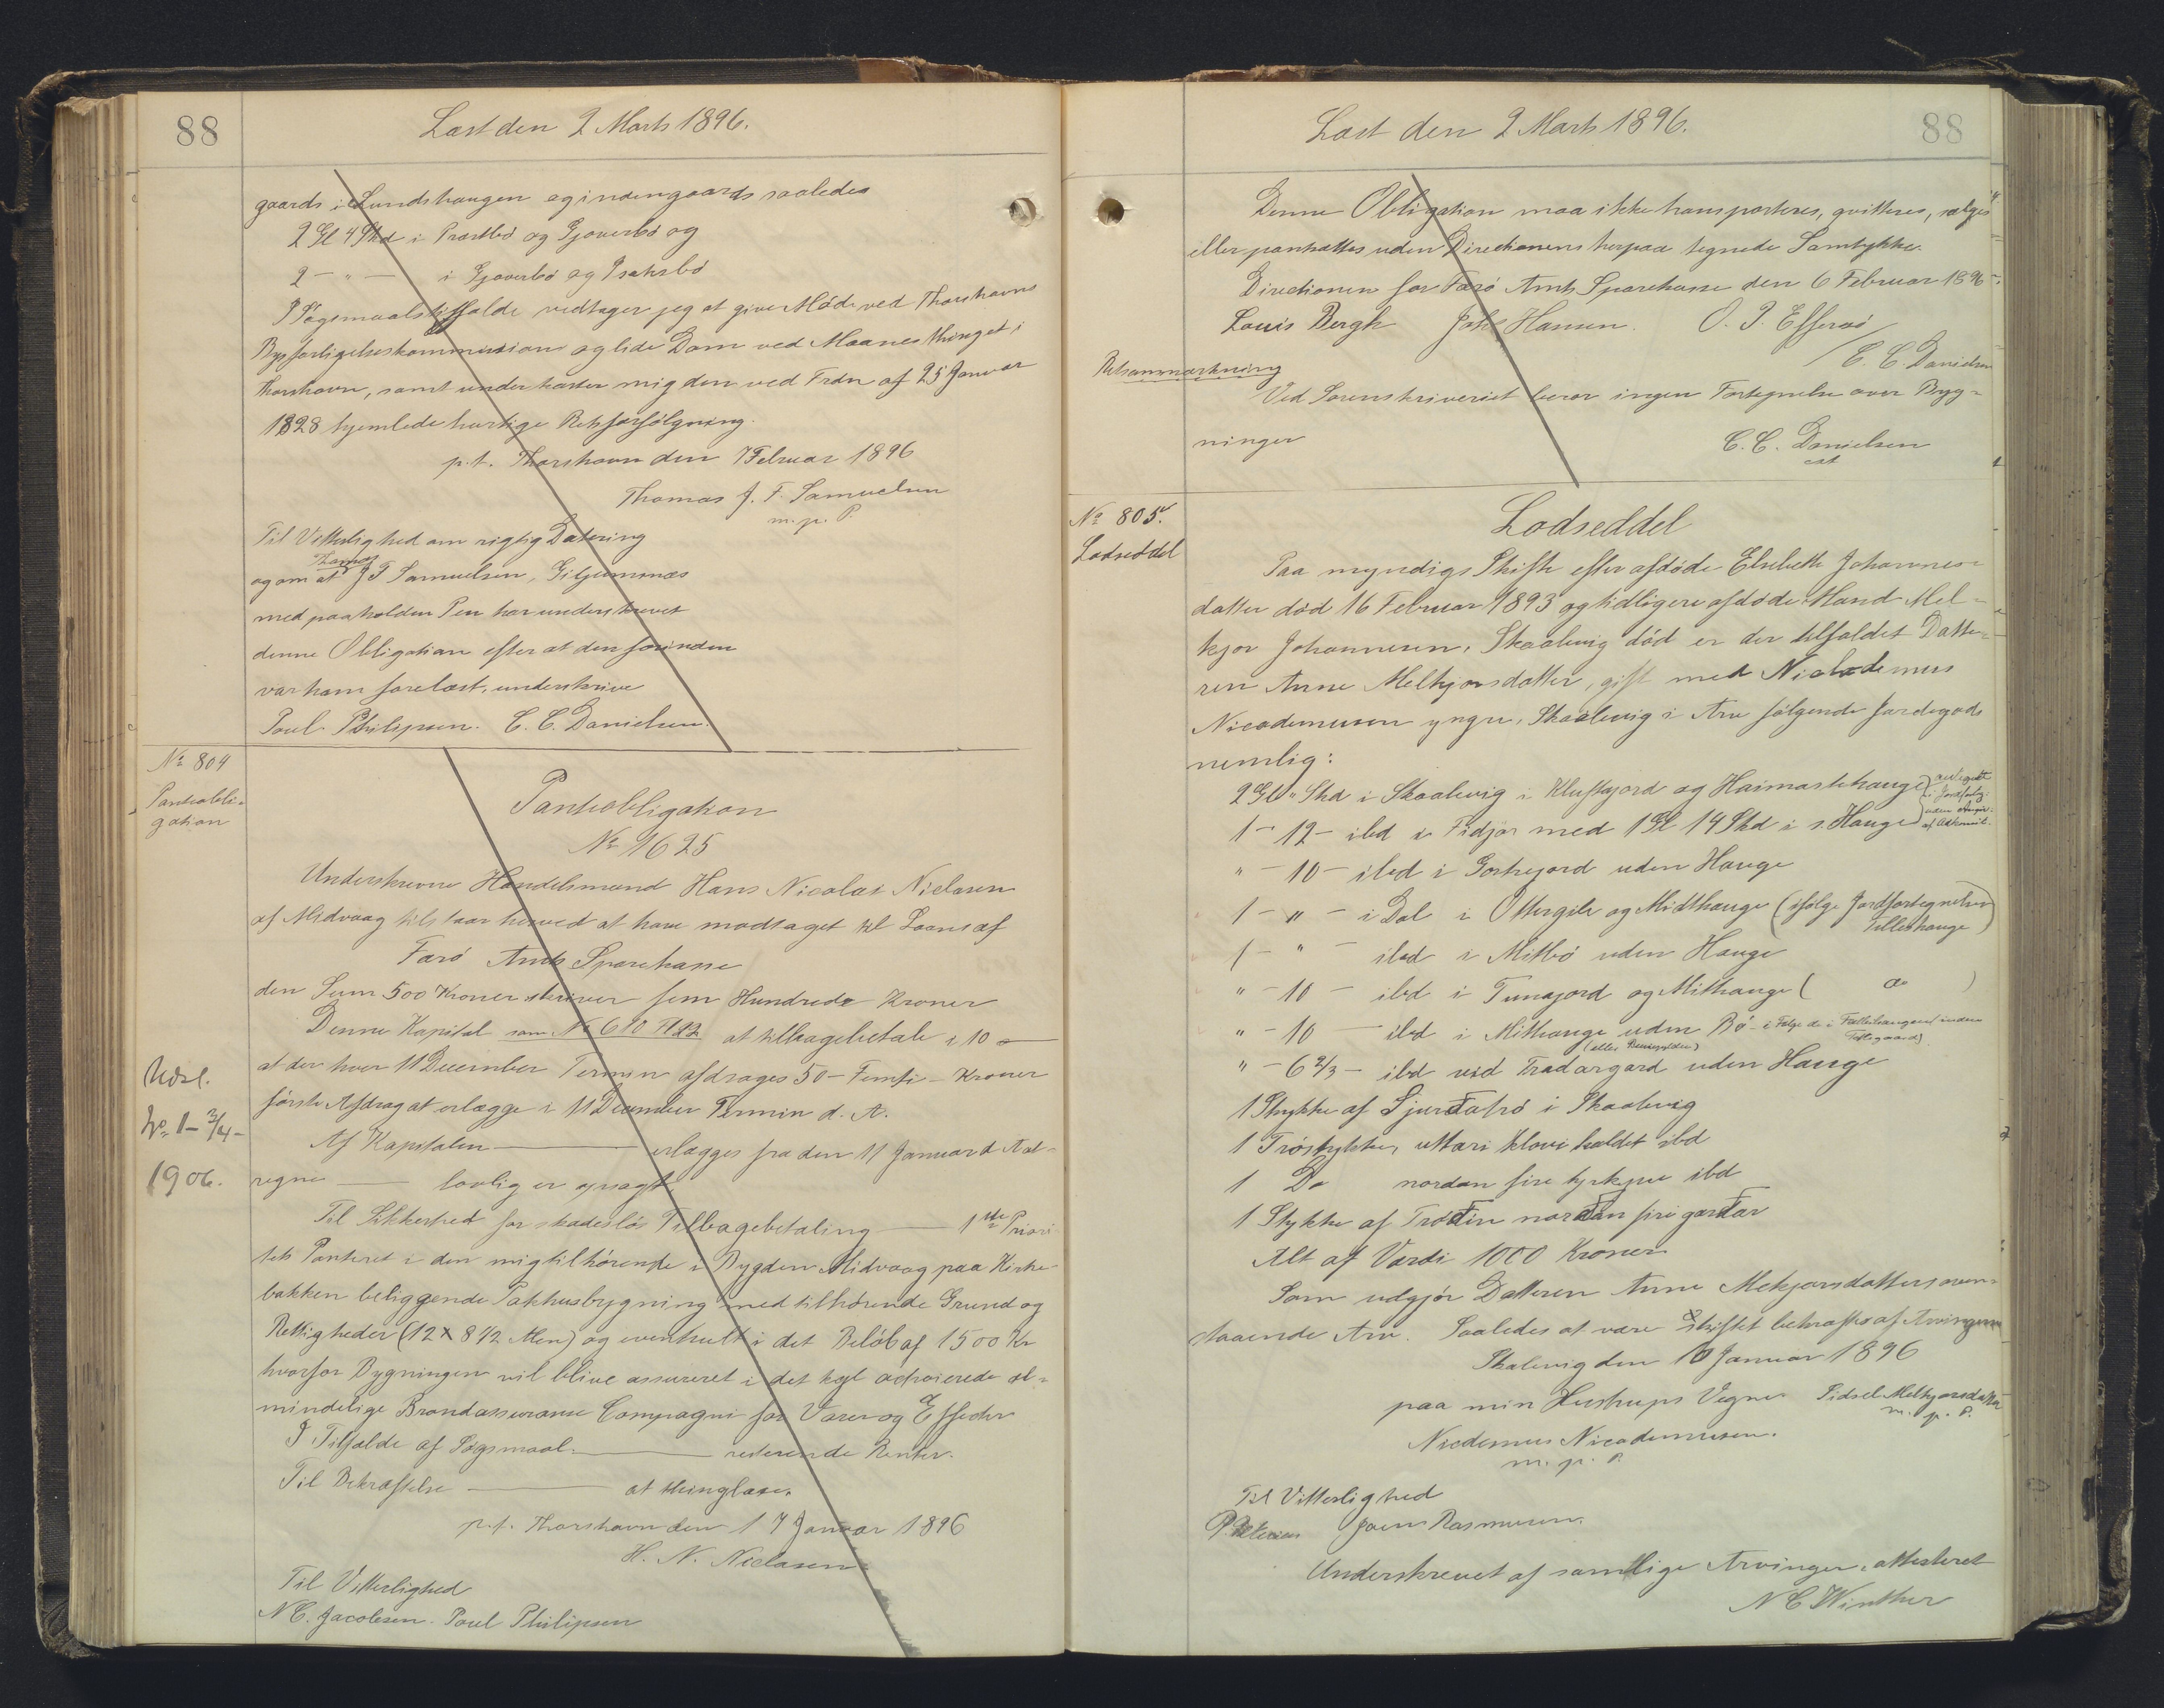 88
Læst den 2 Marts 1896.
gaards i Lundshaugen og indengaards saaledes
2 Gl 4 Skd i Præstbö og Gjoverbö og
2 - " - i Gjoverbö og
I Sögsmaalstilfælde vedtager jeg at give Möde ved Thorshavns
Byes forligelseskommission og lide Dom ved Maanesthinget i
Thorshavn, samt underkaster mig den ved Frdn af 25 Januar
1828 hjemlede hurtige Retsforfölgning.
p.t. Thorshavn den 7 Februar 1896
Thomas J. F. Samuelsen
m. p. P.
Til Vitterlighed om rigtig Datering
Thomas
og om at J F Samuelsen,
med paaholden Pen har underskrevet
denne Obligation efter at den forinden
var ham forelæst, underskrive
Poul Philipsen. C. C. Danielsen.
No 804
Panteobli-
gation
Panteobligation
No 1625
Underskrevne Handelsmand Hans Nicolai Niclasen
af Midvaag tilstaar herved at have modtaget til Laans af
Færö Amts Sparekasse
den Sum 500 Kroner skriver fem Hundrede Kroner
Denne Kapital som No 610 at tilbagebetale i 10
at der hver 11 December Termin afdrages 50 - Femti - Kroner
förste Afdrag at erlægge i 11 December Termin d. A.
Af Kapitalen — erlægges fra den 11 Januar d A at
regne — lovlig er opsagt.
Til Sikkerhed for skadeslös Tilbagebetaling — 1ste Priori-
tets Panteret i den mig tilhörende i Bygden Midvaag paa Kirke-
bakken beliggende Pakhusbygning med tilhörende Grund og
Rettigheder (12 x 8 1/2 Alen) og eventuelt i det Belöb af 1500 Kr
hvorfor Bygningen vil blive assureret i det kgl octroierede al-
mindelige Brandassurance Compagni for Varer og Effecter
I Tilfælde af Sögsmaal — resterende Renter.
Til Bekræftelse — at thinglæse.
p.t. Thorshavn den 17 Januar 1896
H. N. Niclasen
Til Vitterlighed
N C. Jacobsen. Poul Philipsen
Udsl.
No 1 - 3/4 -
1906.
Læst den 2 Marts 1896.
88
Denne Obligation maa ikke transporteres, qvitteres, sælges
eller pantsættes uden Directionens herpaa tegnede Samtykke.
Directionen for Færö Amts Sparekasse den 6 Februar 1896
Louis Bergh Johs Hansen. O. P. Effersö
/ C. C. Danielsen
Retsanmærkning
Ved Sorenskriveriet beror ingen Fortegnelse over Byg-
ninger
C. C. Danielsen
cst
No 805.
Lodseddel
Lodseddel
Paa myndigt Skifte efter afdöde Elsebeth Johannes-
datter död 16 Februar 1893 og tidligere afdöde Mand Mel-
kjor Johannesen, Skaalevig död er der tilfaldet Datte-
ren Anne Melkjorsdatter, gift med Nicodemus
Nicodemusen yngre, Skaalevig i Arv fölgende Jordegods
nemlig:
2 Gl " Skd i Skaalevig i Kluftajord og Haimastehauge
1 - 12 - ibd i Fidjor med 1 Gl 14 Skd i s. Hauge
" - 10 - ibd i uden Hauge
1 - " - i Dal i Ottergile og Midthauge (ifölge Jordfortegnelsen
Felleshauge)
1 - " - ibd i Mitbö uden Hauge
" - 10 - ibd i Tunajord og Mithauge ( do )
" - 10 - ibd i Mithauge uden Bö
" - 6 2/3 - ibd ved Tradargard uden Hauge
1 Stykke af i Skaalevig
1 Tröstykke, uttari Klovi kaldet ibd
1 Do nordan ibd
1 Stykke af nordan firi gardar
Alt af Værdi 1000 Kroner
Som udgjör Datteren Anne Melkjorsdatters oven-
staaende Arv. Saaledes at være skiftet bekræftes af Arvingerne
Skalevig den 10 Januar 1896
paa min Hustrues Vegne Sidsel Melkjorsdatter
m. p. P.
Nicodemus Nicodemusen.
m. p. P.
Til Vitterlighed
P. Petersen Joen Rasmussen.
Underskrevet af samtlige Arvinger, attesteret
N C Winther